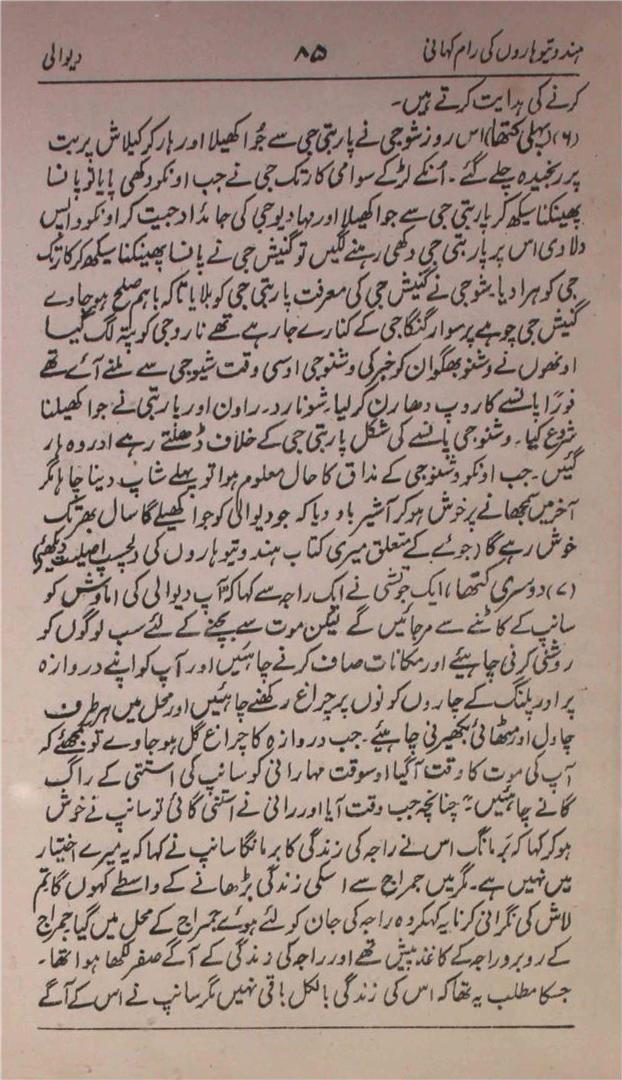 ہندو تیوہاروں کی رام کہانی ۸۵ دیوالی
کرنے کی ہدایت کرتے ہیں۔
(۶) (پہلی کتھا) اس روز شوجی نے پاربتی جی سے جُوا کھیلا اور ہار کر کیلاش پربت
پر رنجیدہ چلے گئے۔ اُنکے لڑکے سوامی کارتک جی نے جب اونکو دکھی پایا تو پانسا
پھینکنا سیکھ کر پاربتی جی سے جوا کھیلا اور مہادیوجی کی جائداد جیت کر اونکو واپس
دلا دی اس پر پاربتی جی دکھی رہنے لگیں تو گنیش جی نے پانسا پھینکنا سیکھ کر کارتک
جی کو ہرا دیا۔ شوجی نے گنیش جی کی معرفت پاربتی جی کو بلایا تاکہ باہم صلح ہو جاوے
گنیش جی چوہے پر سوار گنگا جی کے کنارے جا رہے تھے نارد جی کو پتہ لگ گیا
اونھوں نے وشنو بھگوان کو خبر کی وشنو جی اوسی وقت شیوجی سے ملنے آئے تھے
فوراً پانسے کا روپ دھارن کر لیا۔ شو نارد۔ راون اور پاربتی نے جوا کھیلنا
شروع کیا۔ وشنو جی پانسے کی شکل پاربتی جی کے خلاف ڈھلتے رہے اور وہ ہار
گئیں۔ جب اونکو وشنوجی کے مذاق کا حال معلوم ہوا تو پہلے شاپ دینا چاہا مگر
آخر میں سمجھانے پر خوش ہو کر آشیرباد دیا کہ جو دیوالی کو جوا کھیلے گا سال بھر تک
خوش رہے گا (جوئے کے متعلق میری کتاب ہندو تیوہاروں کی دلچسپ اصلیت دیکھئے)
(۷) دوسری کتھا، ایک جوتشی نے ایک راجہ سے کہا کہ "آپ دیوالی کی اماوش کو
سانپ کے کاٹنے سے مر جائیں گے لیکن موت سے بچنے کے لئے سب لوگوں کو
روشنی کرنی چاہیئے اور مکانات صاف کرنے چاہئیں اور آپ کو اپنے دروازہ
پر اور پلنگ کے چاروں کونوں پر چراغ رکھنے چاہئیں اور محل میں ہر طرف
چاول اور مٹھائی بکھیرنی چاہئے۔ جب دروازہ کا چراغ گل ہو جاوے تو سمجھئے کہ
آپ کی موت کا وقت آگیا اوسوقت مہارانی کو سانپ کی استتی کے راگ
گانے چاہئیں"۔ چنانچہ جب وقت آیا اور رانی نے استتی گائی تو سانپ نے خوش
ہو کر کہا کہ بَر مانگ اس نے راجہ کی زندگی کا بر مانگا سانپ نے کہا کہ یہ میرے اختیار
میں نہیں ہے۔ مگر میں جمراج سے اسکی زندگی بڑھانے کے واسطے کہوں گا تم
لاش کی نگرانی کرنا یہ کہکر وہ راجہ کی جان کو لئے ہوئے جمراج کے محل میں گیا جمراج
کے روبرو راجہ کے کاغذ پیش تھے اور راجہ کی زندگی کے آگے صفر لکھا ہوا تھا۔
جسکا مطلب یہ تھا کہ اس کی زندگی بالکل باقی نہیں مگر سانپ نے اس کے آگے